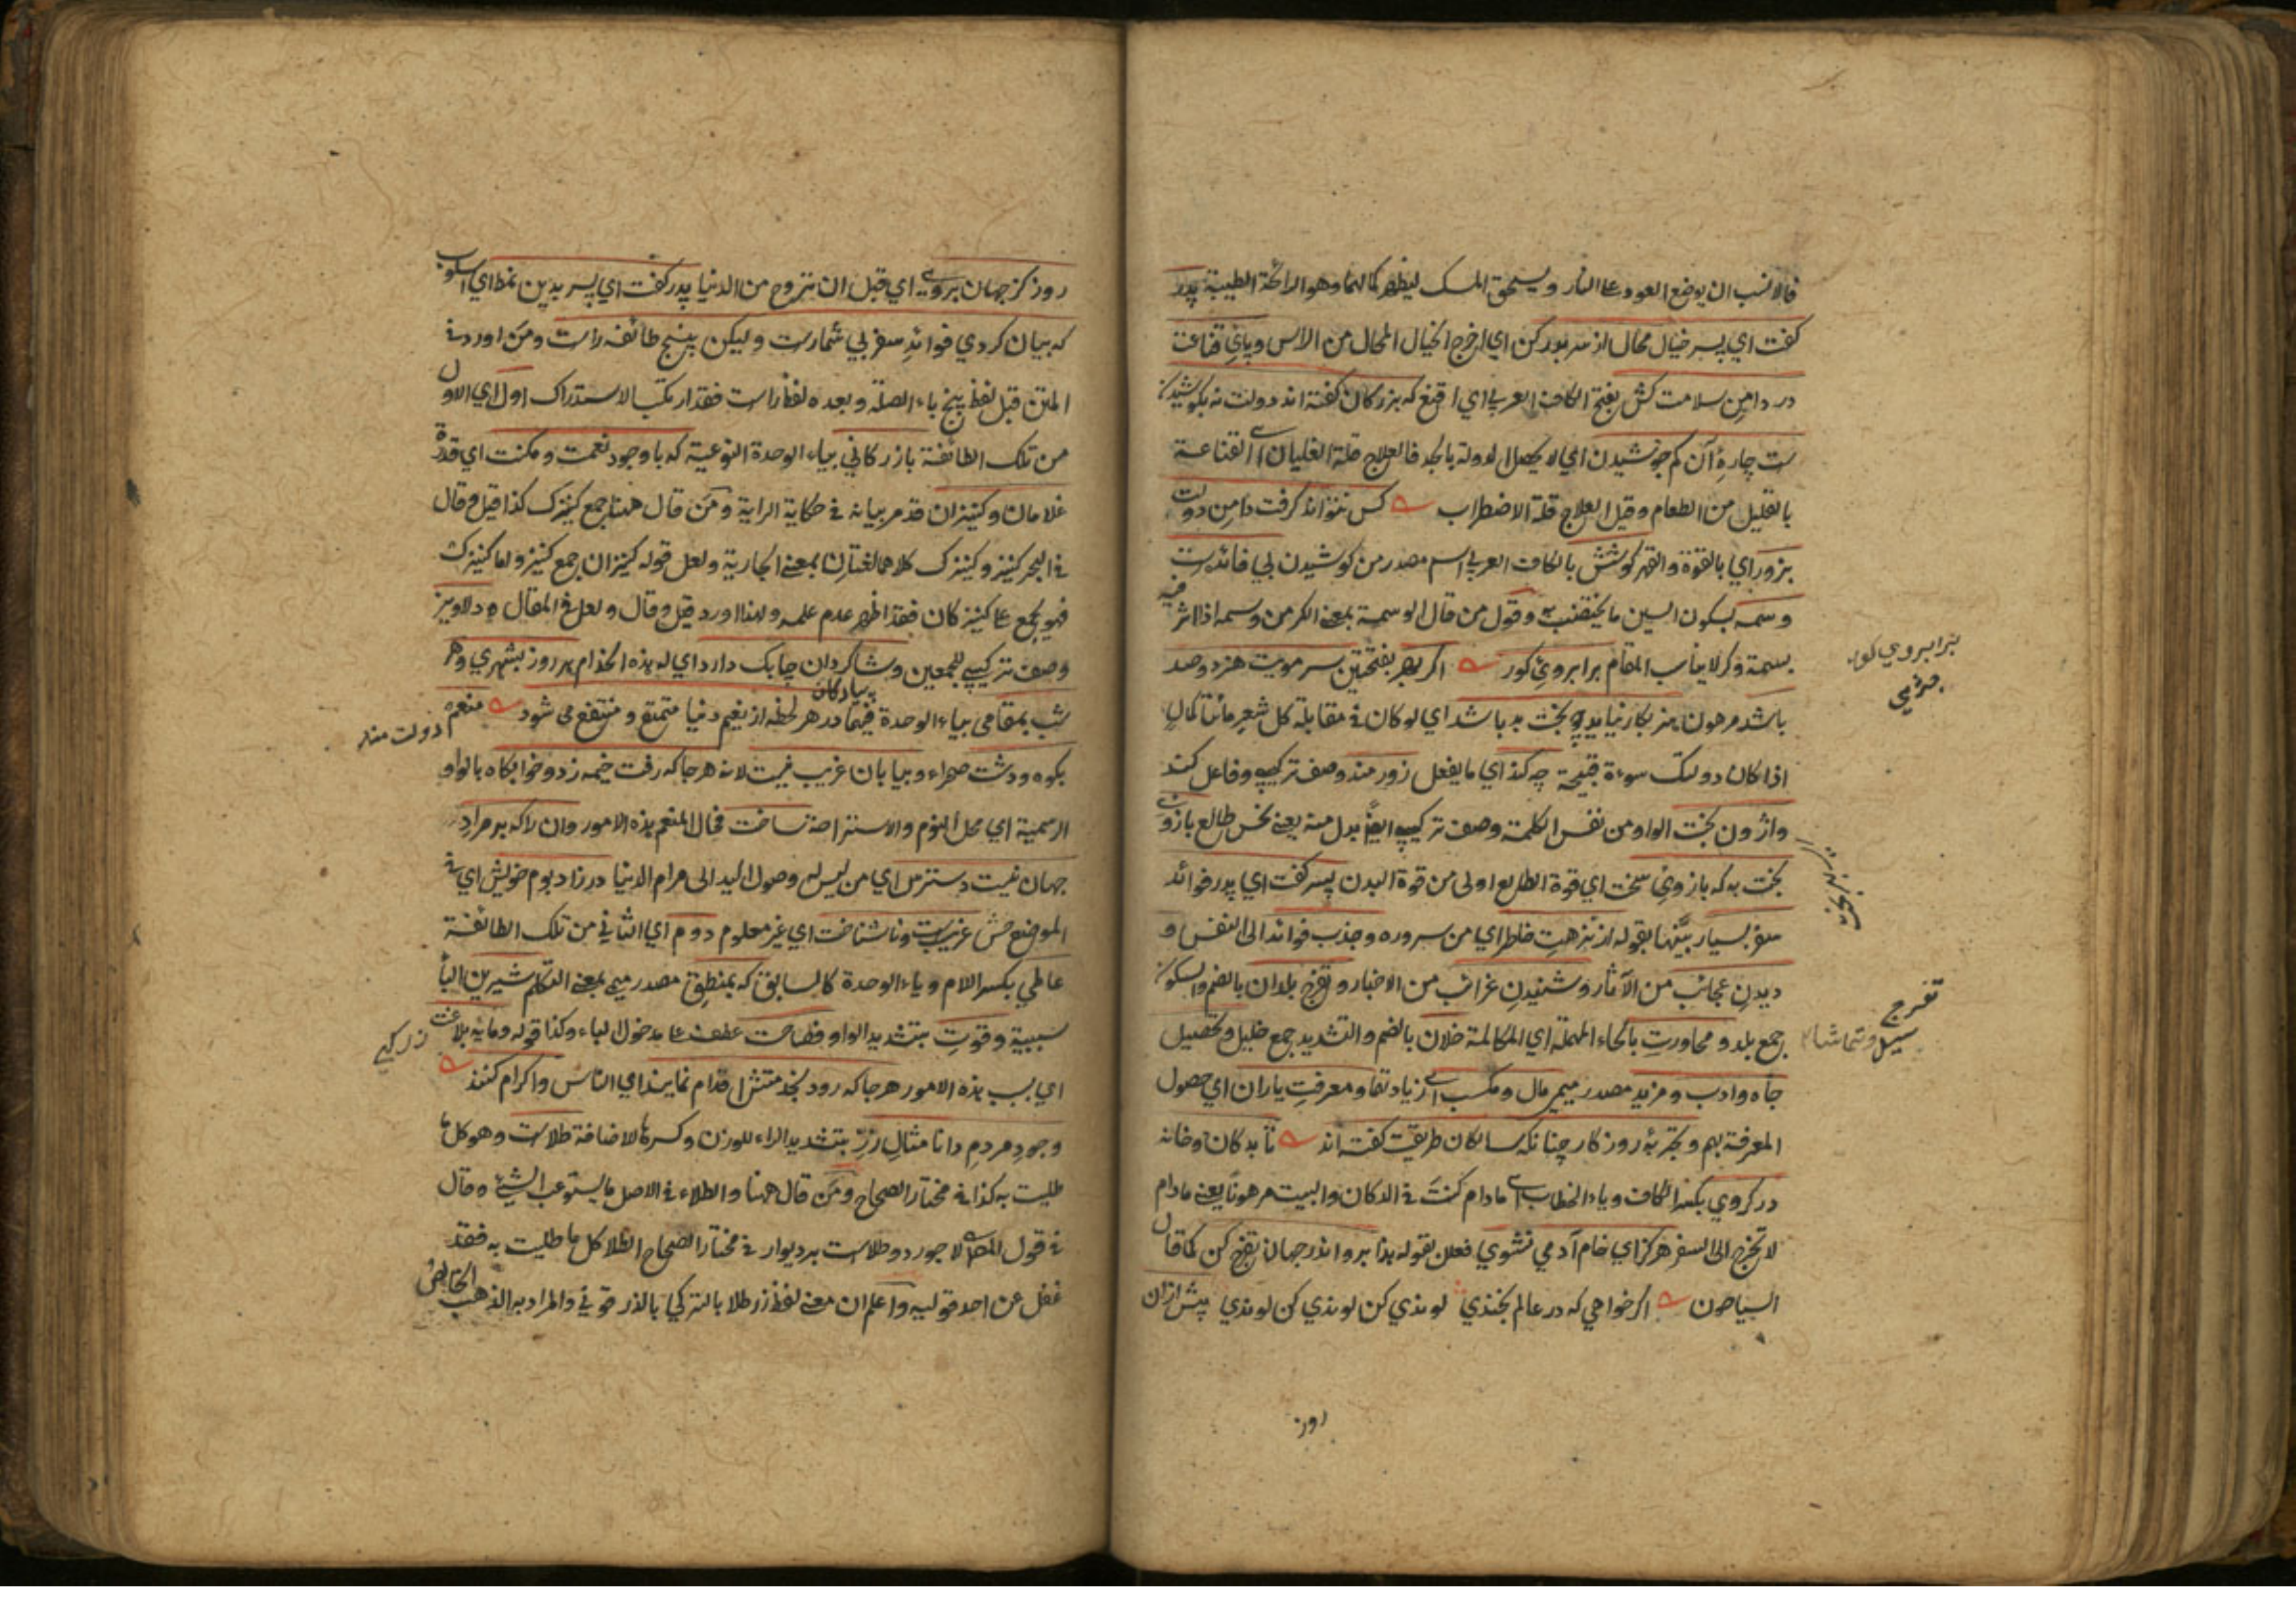 فالانسب ان يوضع العود على النار ويسحق المسك ليظهر كمالهما وهو الرائحة الطيبة پدر
گفت ای پسر خیال محال از سر بدر کن اي اخرج الخيال المحال من الراس وپای قناعت
در دامن سلامت کش بفتح الكاف العربي اي اقنع که بزرگان گفته اند دولت نه بکوشیدن
ست چاره آن کم جوشیدن اي لا يحصل الدولة بالجد فالعلاج قلة الغليان اي القناعة
بالقليل من الطعام وقيل العلاج قلة الاضطراب کس نتواند گرفت دامن دولت
بزور اي بالقوة والقهر کوشش بالكاف العربي اسم مصدر من کوشیدن بی فائده ست
وسمه بسكون السين ما يختضب به وقول من قال الوسمة بمعنى الكر من وسمه اذا اثر فيه
بسمة وكر لا يناسب المقام بر ابروی کور اگر بهر بفتحتين سر مویت هنر دو صد
باشد مرهون هنر بکار نیاید چو بخت بد باشد اي لو كان في مقابلة كل شعر مائتا كمال
اذا كان دولتك سوءة قبيحة چه کند اي ما يفعل زورمند وصف تركيبي وفاعل کند
واژون بخت الواو من نفس الكلمة وصف تركيبي ايضا بدل منه يعني نحس طالع بازوی
بخت به که بازوی سخت اي قوة الطالع اولى من قوة البدن پسر گفت ای پدر فوائد
سفر بسیار بينها بقوله از نزهت خاطر اي من سروره وجذب فوائد الى النفس و
دیدن عجائب من الآثار وشنیدن غرائب من الاخبار وتفرج بلدان بالضم والسكون
جمع بلد ومحاورت بالحاء المهملة اي المكالمة خلان بالضم والتشديد جمع خليل وتحصیل
جاه وادب ومزید مصدر ميمي مال ومکسب اي زيادتهما ومعرفت یاران اي حصول
المعرفة بهم وتجربه روزگار چنانکه سالکان طریقت گفته اند تا بدکان وخانه
در گروی بكسر الكاف وياء الخطاب اي ما دام كنت في الدكان والبيت مرهونا يعني ما دام
لا تخرج الى السفر هرگز ای خام آدمی نشوی فعلن لقوله هذا برو اندر جهان تفرج کن كما قال
السياحون اگر خواهی که در عالم بخندی لوندی کن لوندی کن لوندی پیش ازان
بر ابروی کور
تفرج
سیل وتماشا
روز
روز کز جهان بروی اي قبل ان تروح من الدنيا پدر گفت ای پسر بدین نمط اي اسلوب
که بیان کردی فوائد سفر بی شمارست ولیکن پنج طائفه راست ومن اورد في
المتن قبل لفظ پنج باء الصلة وبعده لفظ راست فقد ارتكب الاستدراك اول اي الاول
من تلك الطائفة بازرگانی بياء الوحدة النوعية که با وجود نعمت ومکنت اي قدرة
غلامان وکنیزان قد مر بيانه في حكاية الراية ومن قال ههنا جمع کنیزک كذا قيل وقال
في البحر کنیز وکنیزک كلاهما لغتان بمعنى الجارية ولعل قوله کنیزان جمع کنیز واما کنیزک
فهو يجمع على کنیزکان فقد اظهر عدم علمه ولهذا اورد قيل وقال ولعل في المقال دلاویز
وصف تركيبي للجمعين وشاگردان چابک دارد اي له هذه الخدام هر روز بشهری وهر
شب بمقامی بياء الوحدة فيهما در هر لحظه از نعیم دنیا متمتع ومنتفع می شود منعم
دولت مند
بکوه ودشت صحراء وبیابان غریب نیست لانه هرجا که رفت خیمه زد وخوابگاه بالواو
الرسمية اي محل النوم والاستراحة ساخت فحال المنعم هذه الامور وان را که بر مراد
جهان نیست دسترس اي من ليس له وصول اليد الى مرام الدنيا در زاد بوم خویش اي في
الموضع غریبست وناشناخت اي غير معلوم دوم اي الثاني من تلك الطائفة
عالمی بكسر اللام وياء الوحدة كالسابق که بمنطق مصدر ميمي بمعنى التكلم شیرین الباء
سببية وقوت بتشديد الواو وفصاحت عطف على مدخول الباء وكذا قوله ومایه بلاغت
اي بسبب هذه الامور هرجا که رود بخدمتش اقدام نمایند اي الناس واکرام کنند
وجود مردم دانا مثال زر بتشديد الراء للوزن وكسرها للاضافة طلاست وهو كل ما
طليت به كذا في مختار الصحاح ومن قال ههنا والطلاء في الاصل ما يستوعب الشيء وقال
في قول المص لاجورد وطلاست بر دیوار في مختار الصحاح الطلا كل ما طليت به فقد
غفل عن احد قوليه واعلم ان معنى لفظ زر طلا بالتركي والمراد به الذهب الخالص